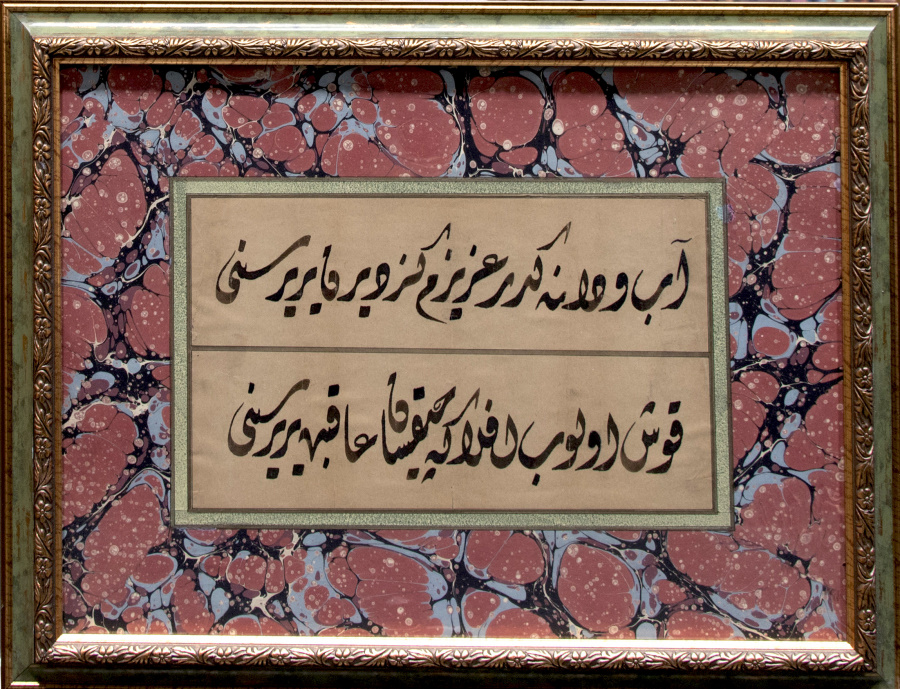 آب و دانه كدر عزيزم كزديرر يريرسنى
قوش اولوب افلاكه چيقسان عاقبه يريرسنى